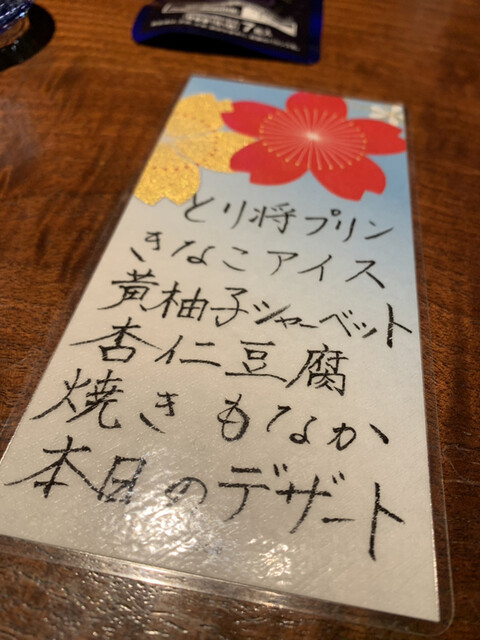 とり将プリン
きなこアイス
黄柚子シャーベット
杏仁豆腐
焼きもなか
本日のデザート